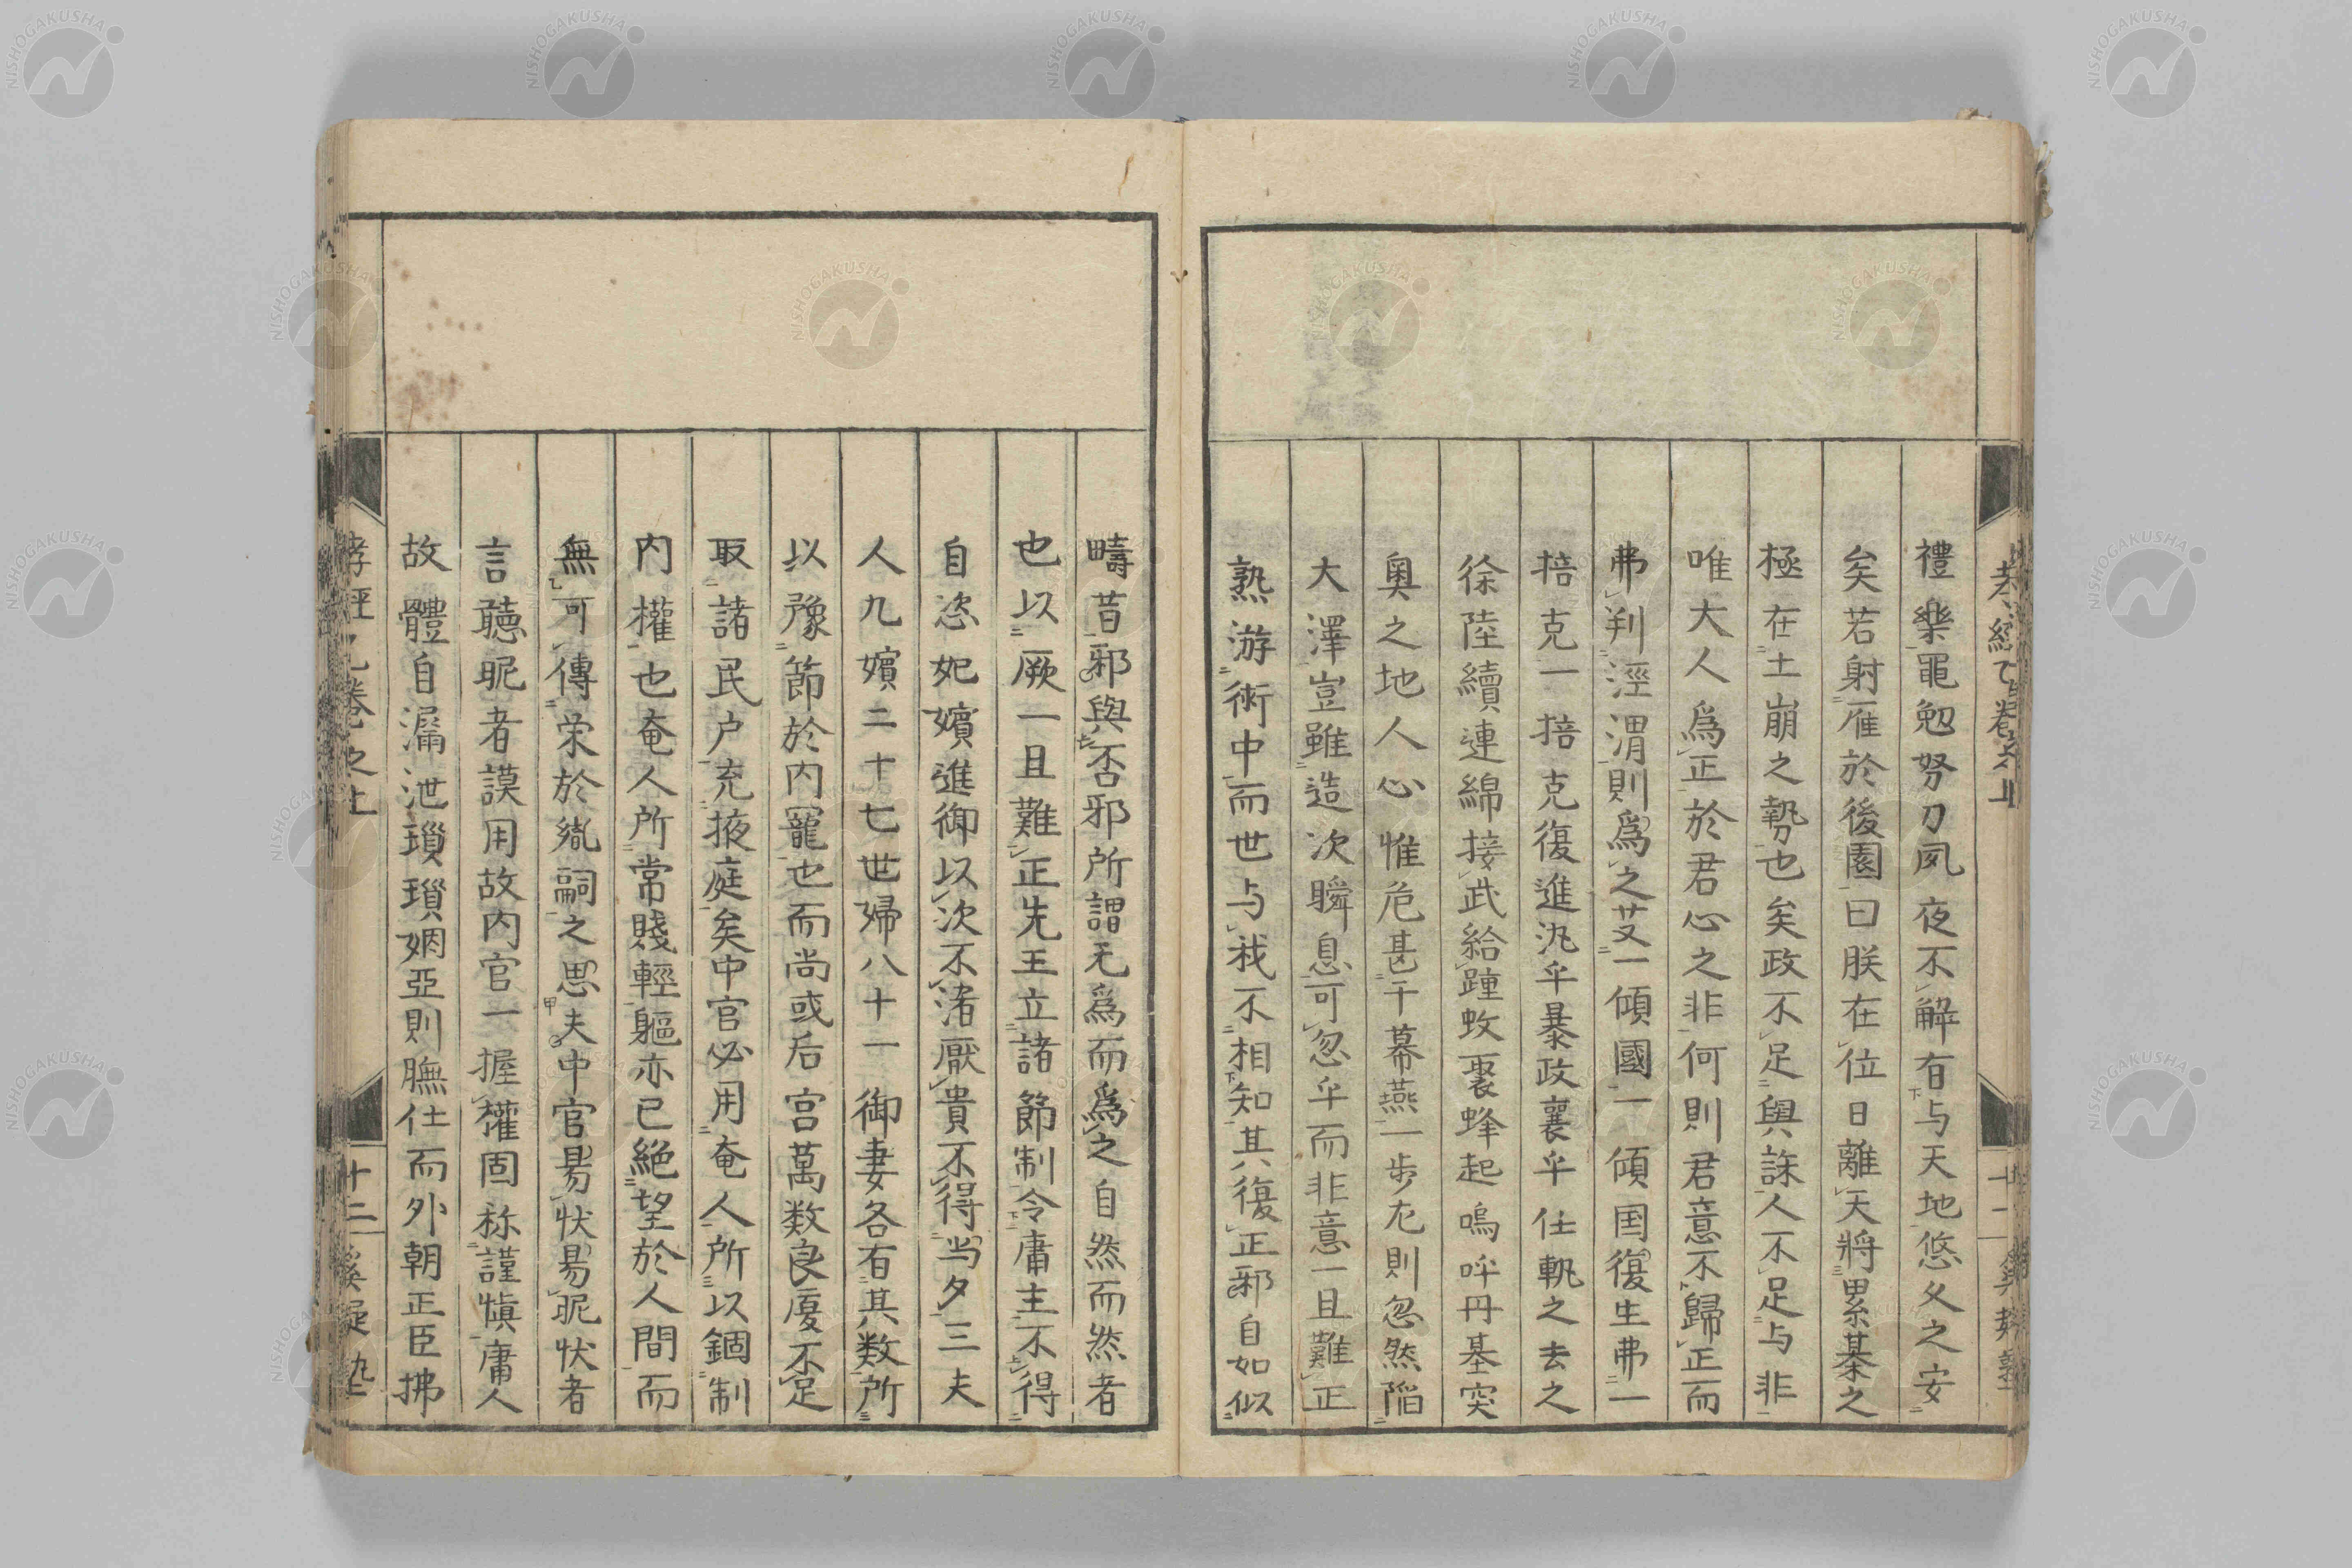 禮樂黽勉努力夙夜不解有与天地悠久之安
矣若射雁於後園曰朕在位日離天將累棊之
極在土崩之勢也矣政不足與誅人不足与非
唯大人爲正於君心之非何則君意不歸正而
弗判涇渭則爲之艾一傾國一傾国復生弗一
掊克一掊克復進汎乎暴政襄乎仕執之去之
徐陸續連綿接武給踵蚊聚蜂起嗚呼丹基突
奧之地人心惟危甚于幕燕一步尤則忽然陷
大澤豈雖造次瞬息可忽乎而非意一且難正
熟游術中而世与我不相知其復正邪自如似
疇昔邪與否邪所謂无爲而爲之自然而然者
也以厥一且難正先王立諸節制令庸主不得
自恣妃嬪進御以次不渚厭貴不得当夕三夫
人九嬪二十七世婦八十一御妻各有其数所
以豫節於内寵也而尚或后宮萬数良厦不足
取諸民户充掖庭矣中官必用奄人所以錮制
内權也奄人所常賤輕軀亦已絶望於人間而
無可傳栄於胤嗣之思夫中官易狀易昵狀者
言聽昵者謨用故内官一握權固称謹愼庸人
故體自漏泄瑣瑣姻亞則膴仕而外朝正臣拂
十二